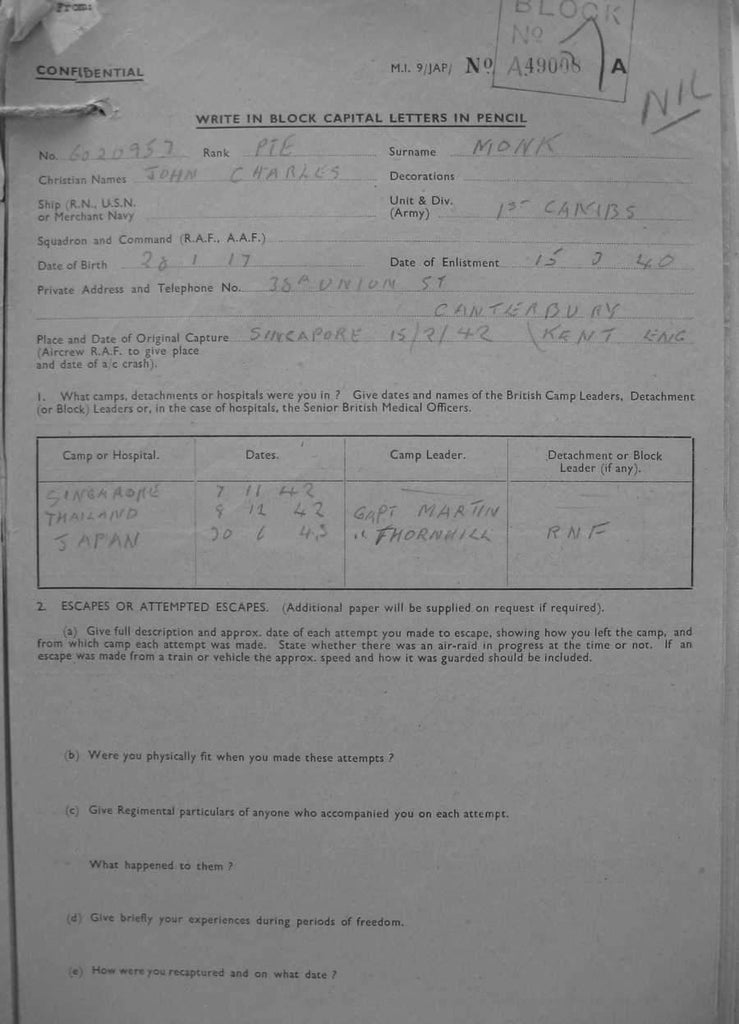 From:
BLOCK
No
CONFIDENTIAL M.I. 9/JAP/ No A49008 A
NIL
WRITE IN BLOCK CAPITAL LETTERS IN PENCIL
No. 6020957 Rank PTE Surname MONK
Christian Names JOHN CHARLES Decorations
Ship (R.N., U.S.N. or Merchant Navy Unit & Div. (Army) 1ST CAMBS
Squadron and Command (R.A.F., A.A.F.)
Date of Birth 28 1 17 Date of Enlistment 15 40
Private Address and Telephone No. 38A UNION ST
CANTERBURY
Place and Date of Original Capture SINGAPORE 15/2/42 KENT ENG
(Aircrew R.A.F. to give place
and date of a/c crash).
1. What camps, detachments or hospitals were you in ? Give dates and names of the British Camp Leaders, Detachment
(or Block) Leaders or, in the case of hospitals, the Senior British Medical Officers.
Camp or Hospital. Dates. Camp Leader. Detachment or Block
Leader (if any).
SINGAPORE 7 11 42
THAILAND 8 12 42 CAPT MARTIN
JAPAN 6 43 " THORNHILL RNF
2. ESCAPES OR ATTEMPTED ESCAPES. (Additional paper will be supplied on request if required).
(a) Give full description and approx. date of each attempt you made to escape, showing how you left the camp, and
from which camp each attempt was made. State whether there was an air-raid in progress at the time or not. If an
escape was made from a train or vehicle the approx. speed and how it was guarded should be included.
(b) Were you physically fit when you made these attempts ?
(c) Give Regimental particulars of anyone who accompanied you on each attempt.
What happened to them ?
(d) Give briefly your experiences during periods of freedom.
(e) How were you recaptured and on what date ?